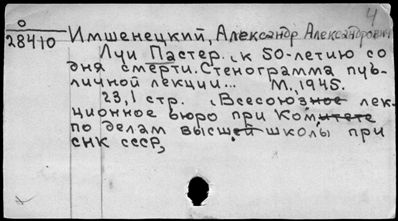 4
0
28410
Имшенецкий, Александр Александрович
Луи Пастер. [к 50-летию со
дня смерти. Стенограмма пуб-
личной лекции... М., 1945.
23,1 стр. (Всесоюзное лек-
ционное бюро при Комитете
по делам высшей школы при
СНК СССР,